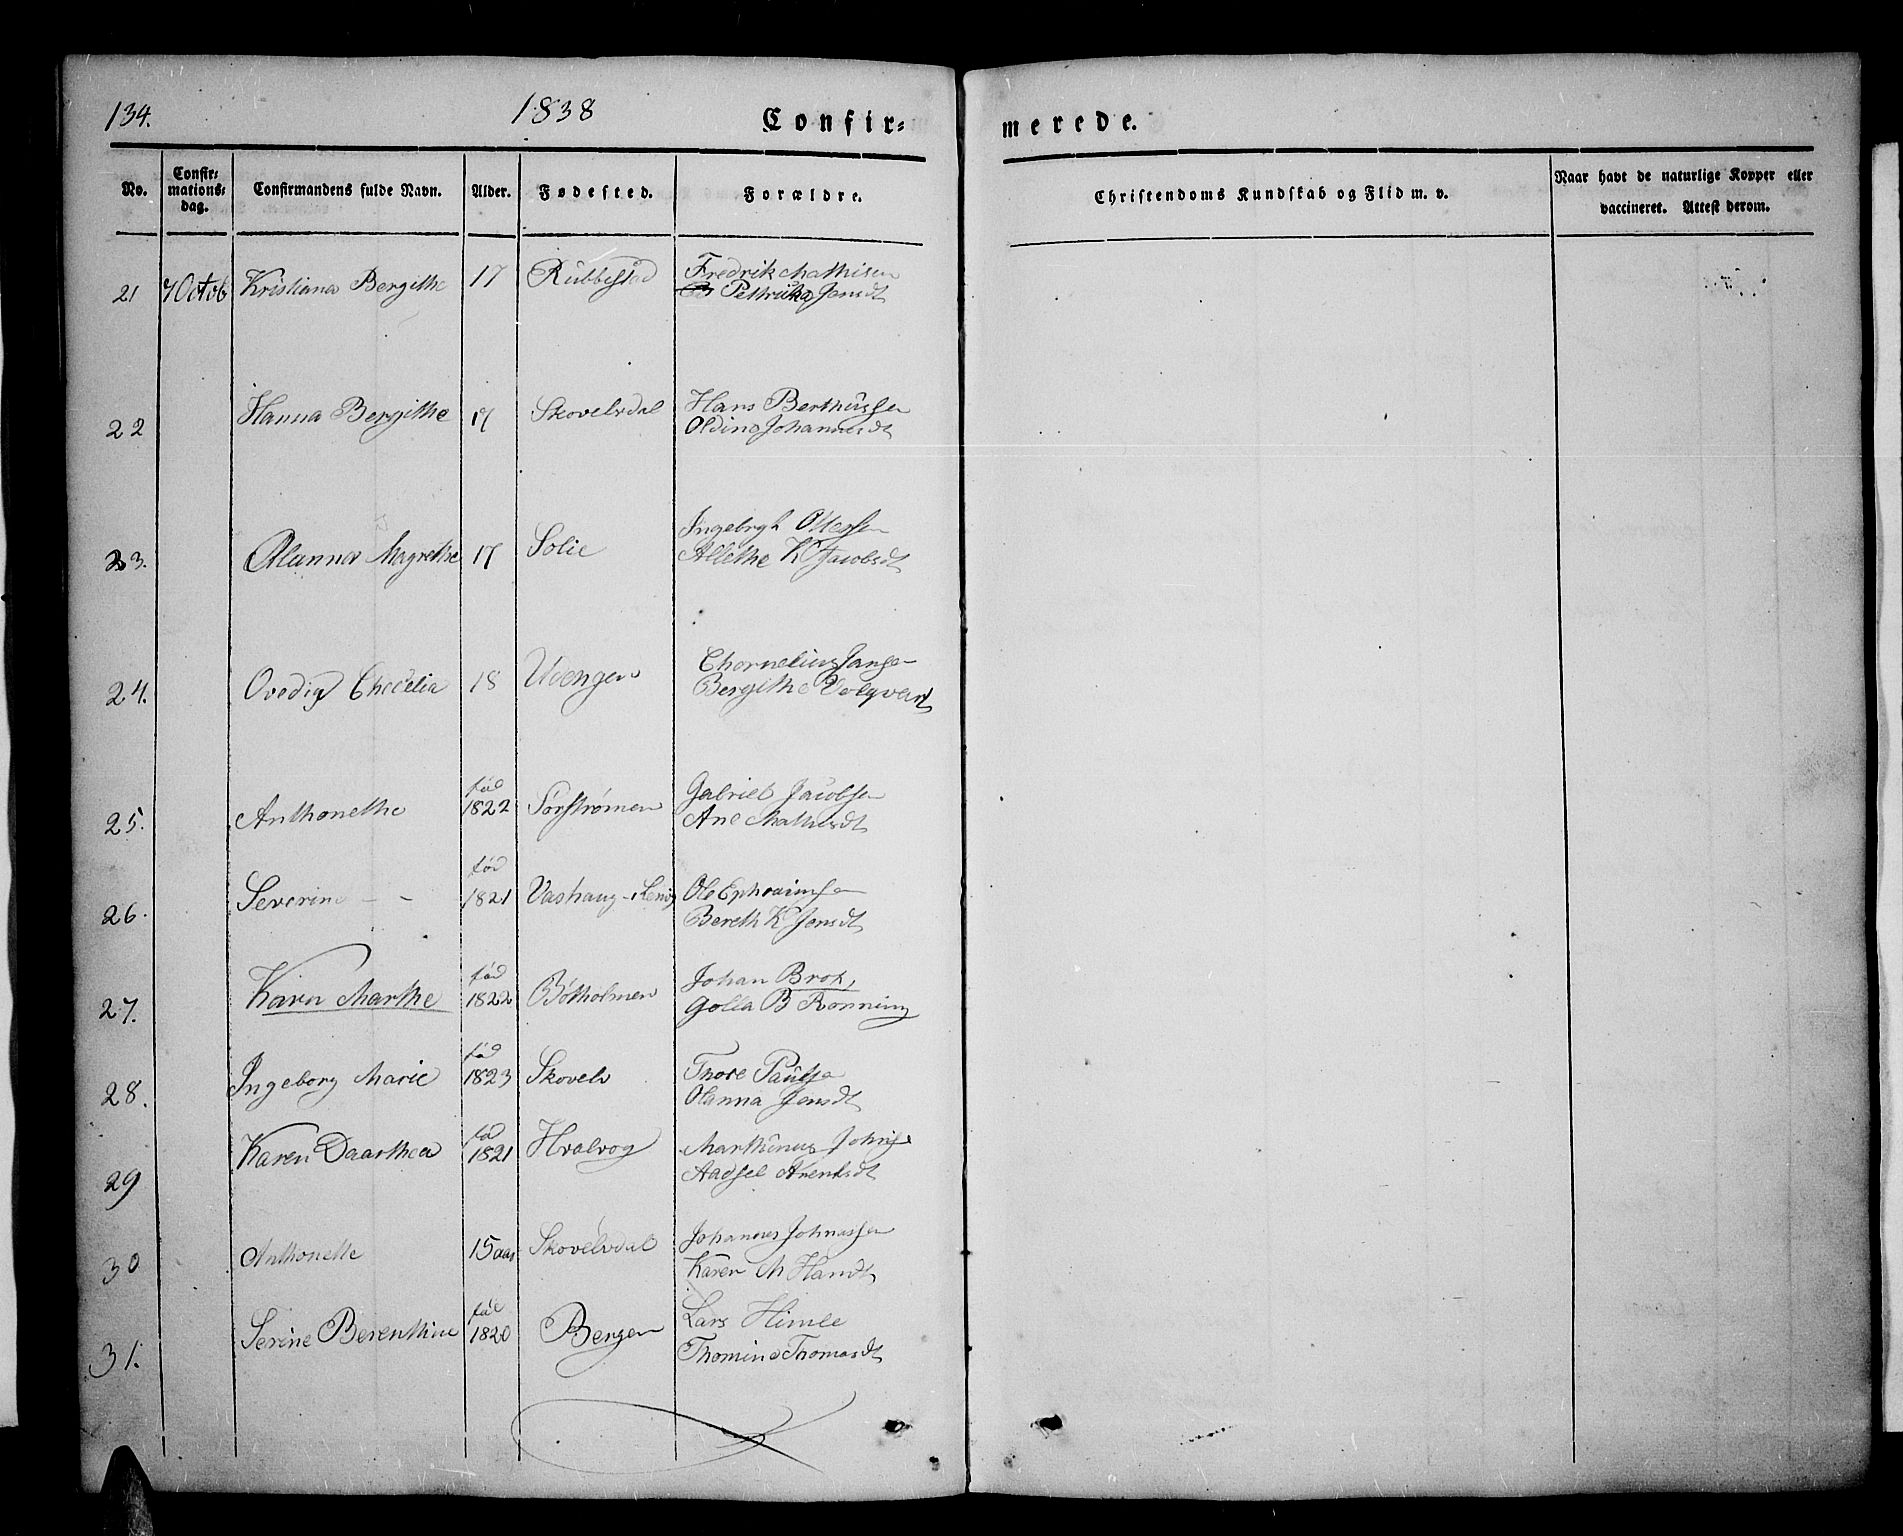 134. 1838 Confir= merede.
No. Confir=mations=dag. Confirmandens fulde Navn. Alder. Fødested. Forældre. Christendoms Kundskab og Flid m. v. Naar havt de naturlige Kopper eller vaccineret. Attest derom.
21 7 Octob Kristiana Bergithe 17 Rubbestad Fredrik Mathisen
Pettrika Jensdt
22 Hanna Bergithe 17 Skovelvdal Hans Berthusen
Oldina Johannesdt
23. Olanna Magrethe 17 Solie Ingebrgt Ottesen
Allethe K Jacobsdt
24. Ovedia Checelia 18 Udengen Chornelius Jansen
Bergithe Volqvart
25. Anthonethe fød 1822 Sørstrømen Gabriel Jacobsen
Ane Mathisdt
26. Severine - - fød 1821 Vashaug - Lenvig Ole Ephraimsen
Bereth K Jensdt
27. Karn Marthe fød 1822 Bótholmen Johan Brox,
Golla B Rønning
28. Ingeborg Marie fød 1823 Skovelv Thore Paulsen
Olanna Jensdt
29 Karen Daarthea fød 1821 Hvalvog Marthinus Johnsen
Aadsel Arentsdt
30 Anthonette 15 aar Skovelvdal Johannes Johnassen
Karen M Handt
31. Serine Berenthine fød 1820 Bergen Lars Himle
Thomine Thomasdt